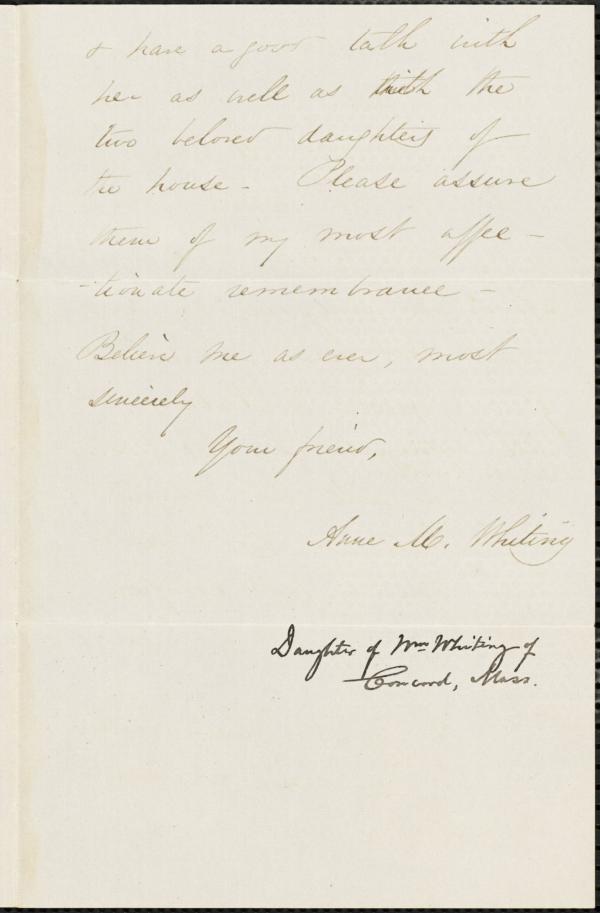 & have a good talk with
her as well as with the
two beloved daughters of
the house - Please assure
them of my most affec -
- tionate remembrance -
Believe me as ever, most
sincerely
Your friend,
Anne M. Whiting
Daughter of Wm Whiting of
Concord, Mass.